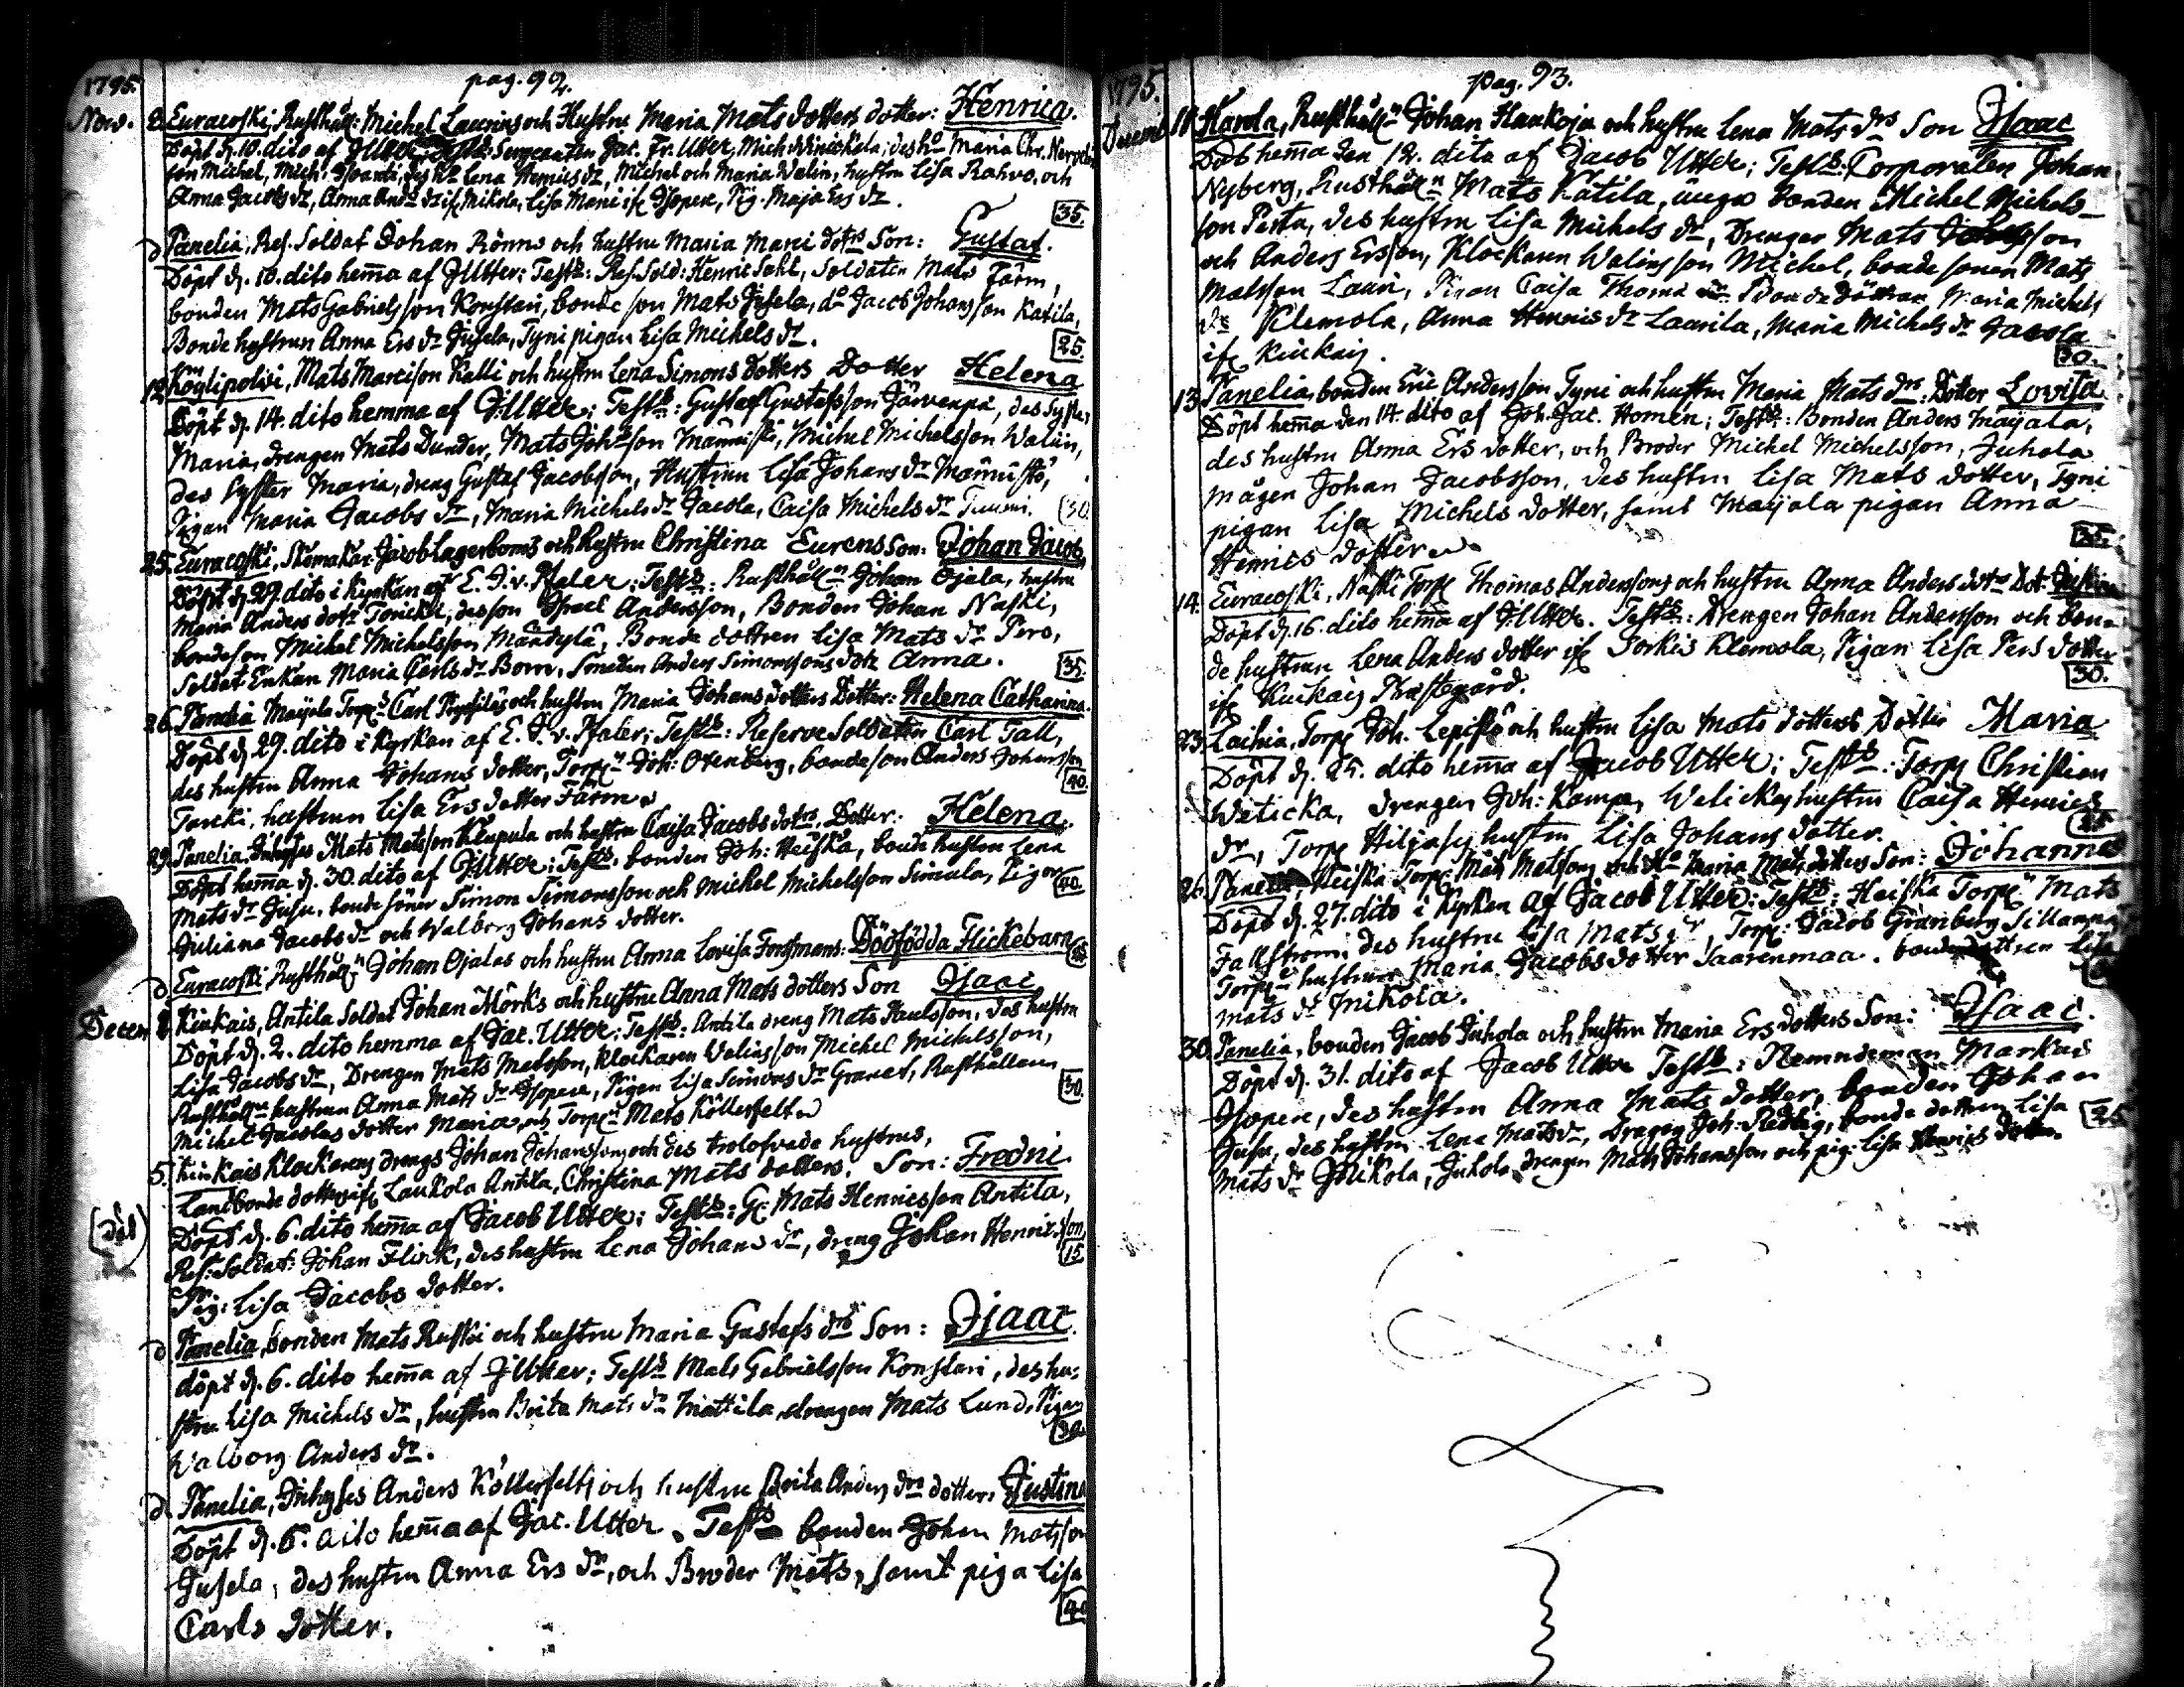 1795. pag. 92.
Nov. 8. Euracoski, Rusthåll: Michel Laurins och Hustru Maria Mats dotters dotter: Henrica.
Döpt d. 10. dito af Sergeanten Jac. Fr. Utter, Mich. des hu Maria Chr.
son Michel, Mich: des hu Lena Henrics dr, Michel och Maria Walin, hustru Lisa Rahvo, och
Anna Jacobs dr, Anna And: dr if. Mikola, Lisa if. Isopere, Pig. Maja Ers dr.
35.
d Panelia, Res. Soldat Johan Rönns och hustru Maria Marci dotrs Son: Gustaf.
Döpt d. 10. dito hem̄a af J Utter: Test:s: Res. Sold: Henric Sahl, Soldaten Mats Färm,
bonden Mats Gabrielsson Konstari, bonde son Mats Jusela, do Jacob Johansson Katila,
Bonde hustrun Anna Ers dr Jusela, Tyni pigan Lisa Michels dr.
25.
12. Köylipolvi, Mats Marcison Kalli och hustru Lena Simons dotters Dotter Helena
Döpt d. 14. dito hemma af J: Utter: Test:s: Gustaf Gustafsson Järvenpä, des Syster
Maria, drengen Mats Dunder, Mats Johsson Männistö, Michel Michelsson Walin,
des Syster Maria, dreng Gustaf Jacobsson, Hustrun Lisa Johans dr Männistö,
Pigan Maria Jacobs dr, Maria Michels dr Jacola, Caisa Michels dr Tuomi.
30.
25. Euracoski, Skomakar Jacob Lagerboms och hustru Christina Eurens Son: Johan Jacob
Döpt d. 29. dito i Kyrkan af E. J. v. Pfaler: Test:s: Rusthålln Johan Ojala, hustru
Maria Anders dotr Torickel, des son Israel Andersson, Bonden Johan Naski,
bondeson Michel Michelsson Mäntylä, Bonde dottren Lisa Mats dr Pero,
Soldat Enkan Maria Carls dr Borm, Smeden Anders Simonssons dotr Anna.
35.
26. Panelia Maijala Torp:s Carl och hustru Maria Johans dotters Dotter: Helena Catharina.
Döpt d. 29. dito i Kyrkan af E. J. v. Pfaler; Test:s: Reserve Soldaten Carl Tall,
des hustru Anna Johans dotter, Torpn Joh: Oxenberg, bondeson Anders Johansson
Tarcki, hustrun Lisa Ers dotter Färm.
40.
29. Panelia Inhyses Mats Matsson Kaupula och hustru Caisa Jacobs dotrs Dotter: Helena.
Döpt hem̄a d. 30. dito af J Utter: Test:s: bonden Joh: Heiska, bonde hustrun Lena
Mats dr Jusu, bonde söner Simon Simonsson och Michel Michelsson Simula, Pigor
Juliana Jacobs dr och Walborg Johans dotter.
40.
d Euracoski Rusthålln Johan Ojalas och hustru Anna Lovisa Forsmans: Dödfödda Flickebarn
Decem 1. Kiukais, Antila Soldat Johan Mörks och hustru Anna Mats dotters Son Isaac.
Döpt d. 2. dito hemma af Jac. Utter: Test:s: Antila dreng Mats Paulsson, des hustru
Lisa Jacobs dr, Drengen Mats Matsson, Klockaren Walins son Michel Michelsson,
Rusthåll:ns hustrun Anna Mats dr Isopere, Pigan Lisa Simons dr Granet, Rusthållaren
Michel Jacolas dotter Maria och Torpn Mats Köllerfelt.
30.
5. Kiukais Klockarens drengs Johan Johanssons och des trolofvade hustrus,
Landbonde dotter if. Laukola Antila, Christina Mats dotters. Son: Fredric
Döpt d. 6. dito hem̄a af Jacob Utter: Test:s: Mats Henricsson Antila,
Res: Soldat: Johan Flinck, des hustru Lena Johans dr, dreng Johan Henricsson,
Pig: Lisa Jacobs dotter.
15.
d Panelia, bonden Mats Ruskis och hustru Maria Gustafs drs Son: Isaac.
döpt d. 6. dito hem̄a af J Utter; Test:s Mats Gabrielsson Konstari, des hu-
stru Lisa Michels dr, hustru Brita Mats dr Mattila, drengen Mats Lund, Pigan
Walborg Anders dr.
30.
d Panelia, Inhyses Anders Köllerfelts och hustru Brita Anders drs dotter: Justina
Döpt d. 6. dito hem̄a af Jac. Utter. Test:s bonden Johan Matsson
Jusela, des hustru Anna Ers dr, och Broder Mats, samt piga Lisa
Carls dotter.
40
1795. pag. 93.
Decemb. 11 Harola, Rusthålln Johan Haukoja och hustru Lena Mats drs Son Isaac
Döpt hem̄a den 12. dito af Jacob Utter: Test:s: Corporalen Johan
Nyberg, Rusthålln Mats Katila, unga bonden Michel Michels-
son Perta, des hustru Lisa Michels dr, Drengar Mats
och Anders Ersson, Klockaren Walins son Michel, bondesonen Mats
Matsson Lauri, Pigan Caisa Thomæ dr. Bonde döttrar Maria Michels
dr Klemola, Anna Henrics dr Laurila, Maria Michels dr Jacola
if. Kiukais.
30.
13. Panelia, bonden Eric Andersson Tyni och hustru Maria Mats drs: Dotter Lovisa
Döpt hem̄a den 14. dito af Joh. Jac. Homén; Test:s: Bonden Anders Maijala,
des hustru Anna Ers dotter, och Broder Michel Michelsson, Juhola
mågen Johan Jacobsson, des hustru Lisa Mats dotter, Tyni
pigan Lisa Michels dotter, samt Maijala pigan Anna
Henrics dotter.
35.
14. Euracoski, Naski Torp. Thomas Anderssons och hustru Anna Anders dotrs Dot.
Döpt d. 16. dito hem̄a af J: Utter. Test:s: Drengen Johan Andersson och bon-
de hustrun Lena Anders dotter if. Sorkis Klemola, Pigan Lisa Pers dotter
if. Kiukais Prästegård.
30.
23. Laihia, Torp. Joh. Lepistö och hustru Lisa Mats dotters Dotter Maria
Döpt d. 25. dito hem̄a af Jacob Utter: Test:s: Torp. Christian
Waticka, drengen Joh: Kamp, Watickas hustru Caisa Henrics
dr, Torp. hustru Lisa Johans dotter.
25
26. Panelia Heiska Torp: Mats Matsons och Hu Maria Mats dotters Son: Johannes
Döpt d. 27. dito i Kyrkan af Jacob Utter: Test:s: Heiska Torpn Mats
Fallström, des hustru Lisa Mats dr, Torp: Jacob Granberg
Torp:s hustrun Maria Jacobs dotter Saarenmaa. bonde dottren Lisa
Mats dr Mikola.
30. Panelia, bonden Jacob Juhola och hustru Maria Ers dotters Son: Isaac.
Döpt d. 31. dito af Jacob Utter Test:s: Nemndeman Markus
Isopere, des hustru Anna Mats dotter, bonden Johan
Jusu, des hustru Lena Mats dr, Dragon Joh: Redlig, bonde dottren Lisa
Mats dr Mikola, Juhola drengen Mats Johansson och pig: Lisa Henrics dotter.
25